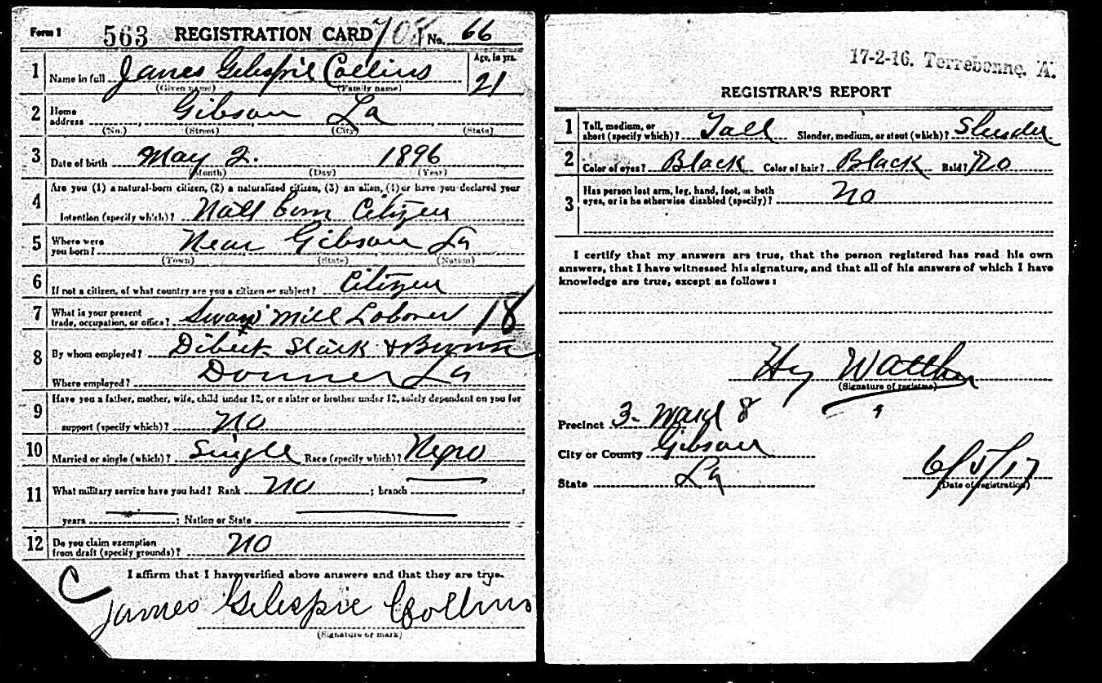 Form 1 563 REGISTRATION CARD No. 66
1 Name in full James Gilespie Collins Age, in yrs. 21
(Given name) (Family name)
2 Home address Gibson La
(No.) (Street) (City) (State)
3 Date of birth May 2. 1896
(Month) (Day) (Year)
4 Are you (1) a natural-born citizen, (2) a naturalized citizen, (3) an alien, (4) or have you declared your
intention (specify which)? Natl born Citizen
5 Where were you born? Near Gibson La
(Town) (State) (Nation)
6 If not a citizen, of what country are you a citizen or subject? Citizen
7 What is your present trade, occupation, or office? Mill Laborer 18
8 By whom employed? Dibert Stark & Brown
Where employed? Donner La
9 Have you a father, mother, wife, child under 12, or a sister or brother under 12, solely dependent on you for
support (specify which)? No
10 Married or single (which)? Single Race (specify which)? Negro
11 What military service have you had? Rank NO ; branch ;
years ; Nation or State
12 Do you claim exemption from draft (specify grounds)? NO
I affirm that I have verified above answers and that they are true.
C
James Gilespie Collins
(Signature or mark)
17-2-16. Terrebonne. A.
REGISTRAR'S REPORT
1 Tall, medium, or short (specify which)? Tall Slender, medium, or stout (which)? Slender
2 Color of eyes? Black Color of hair? Black Bald? No
3 Has person lost arm, leg, hand, foot, or both eyes, or is he otherwise disabled (specify)? NO
I certify that my answers are true, that the person registered has read his own
answers, that I have witnessed his signature, and that all of his answers of which I have
knowledge are true, except as follows:
Hy
(Signature of registrar)
Precinct 3- Ward 8
City or County Gibson
State La
6/5/17
(Date of registration)